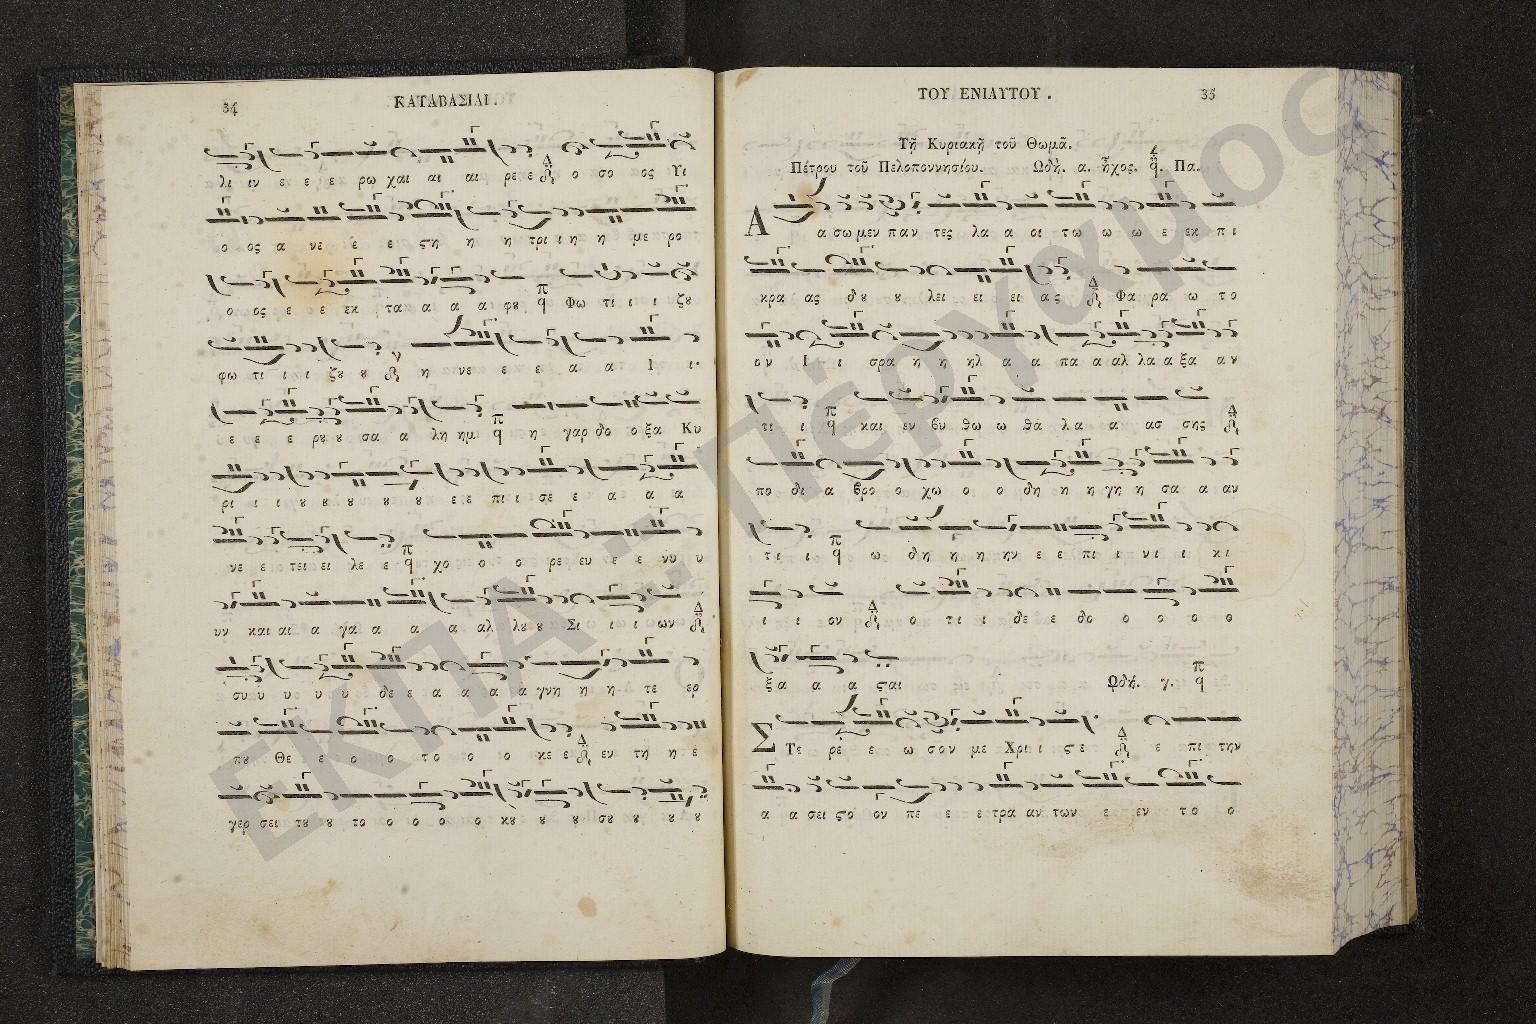 34 ΚΑΤΑΒΑΣΙΑΙ.
λι ιν ε ε ε ε ρω χαι αι αι ρε νε ο σο ος Υι
ο ος α νε ε ε ϛη η η τρι ι η η με ρο
ο ος ε ε εκ τα α α α φȣ Φω τι ι ι ζȣ
φω τι ι ι ζȣ ȣ η νε ε ε ε α α Ι ι
ε ε ε ρȣ ȣ σα α λη ημ η γαρ δο ο ξα Κυ
ρι ι ι ȣ ȣ ȣ ȣ ȣ ȣ ε ε πι ι σε ε α α α
νε ε τει ει λε ε χο ο ο ο ρε ευ ε ε νυ υ
υν και αι α γα α α α αλ λȣ ȣ Σι ι ι ων
συ υ υ υ υ υ δε ε α α α α γνη η η τε ερ
πȣ Θε ε ε ο ο ο το ο ο κε ε εν τη η ε
γερ σει τȣ ȣ το ο ο ο ο κȣ ȣ ȣ σȣ ȣ ȣ ȣ
ΤΟΥ ΕΝΙΑΥΤΟΥ. 35
Τῇ Κυριακῇ τοῦ Θωμᾶ.
Πέτρου τοῦ Πελοποννησίου. Ωδὴ. α. ἦχος. Πα.
Α α σω μεν παν τες λα α οι τω ω ω ε εκ πι
κρα ας δȣ ȣ ȣ λει ει ει ας Φα ρα ω το
ον Ι ι σρα η η ηλ α α πα α αλ λα α ξα αν
τι ι και εν βυ θω ω θα λα α ασ σης
πο δι α βρο ο χω ο ο δη η η γη η σα α αν
τι ι ω δη η η ην ε ε πι ι νι ι κι
ι ι ον ο τι ι δε ε δο ο ο ο ο
ξα α α ϛαι Ωδή. γ.
Σ Τε ρε ε ω σον με Χρι ι ϛε ε πι την
α α σει ϛο ον πε ε ε τρα αν των ε εν το ο